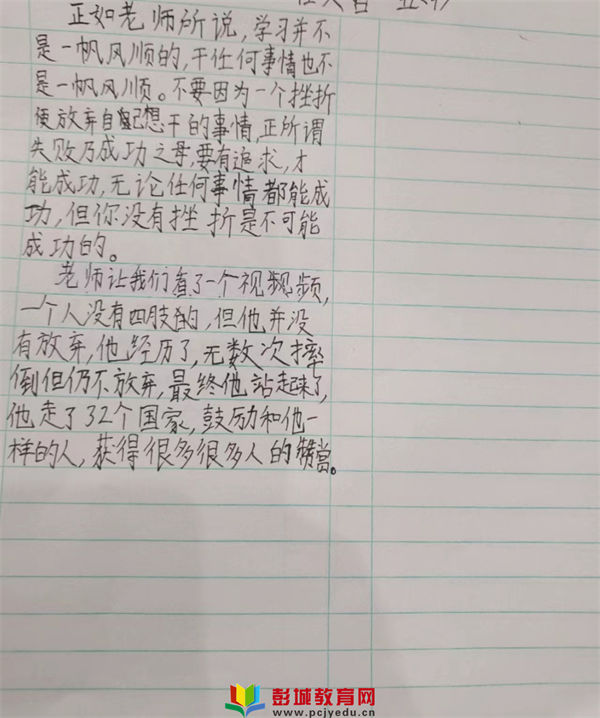 正如老师所说,学习并不
是一帆风顺的,干任何事情也不
是一帆风顺。不要因为一个挫折
便放弃自己想干的事情,正所谓
失败乃成功之母,要有追求,才
能成功,无论任何事情都能成
功,但你没有挫折是不可能
成功的。
老师让我们看了一个视频,
一个人没有四肢的,但他并没
有放弃,他经历了,无数次摔
倒但仍不放弃,最终他站起来了,
他走了32个国家,鼓励和他一
样的人,获得很多很多人的赞赏。
彭城教育网
www.pcjyedu.cn